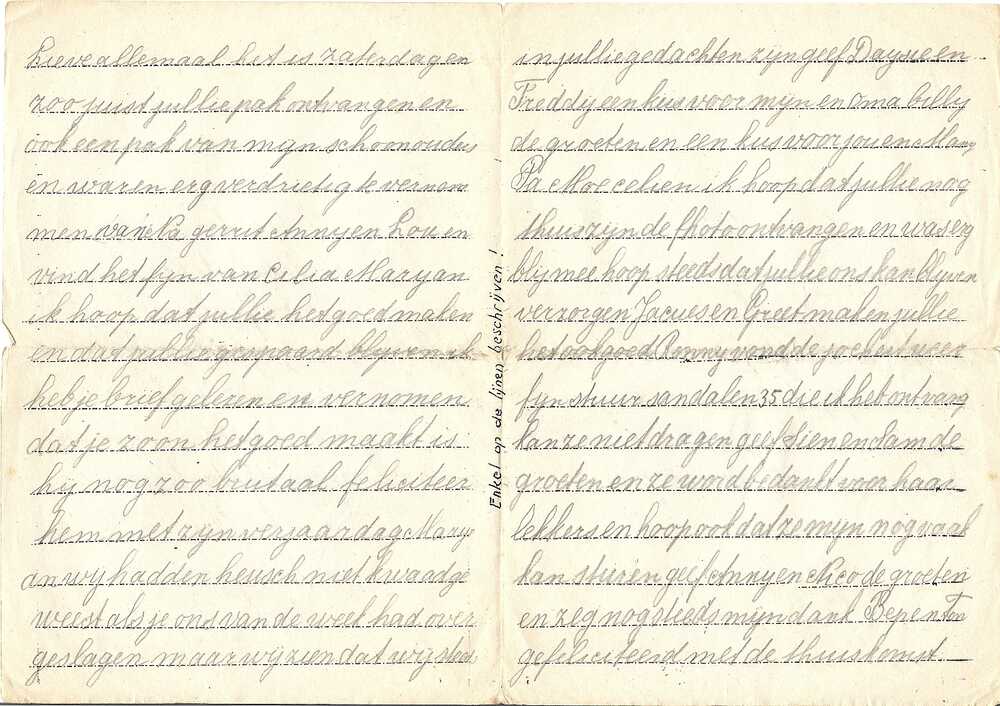 Lieve allemaal het is zaterdag en
zoo juist jullie pak ontvangen en
ook een pak van mijn schoonouders
en waren erg verdrietig te verno
men van Na gerrit Anny en Lou en
vind het fyn van Cilia Maryan
ik hoop dat jullie het goed maken
en dat jullie gespaard blyven ik
heb je brief gelezen en vernomen
dat je zoon het goed maakt is
hij nog zoo brutaal feliciteer
hem met zijn verjaardag Mary
an wij hadden heusch niet kwaad ge
weest als je ons van de week had over
geslagen maar wij zien dat wij steeds
Enkel op de lijnen beschrijven!
in jullie gedachten zijn geef Daysie en
Freddy een kus voor mijn en oma billy
de groeten en een kus voor jou en Mary
Pa Moe celien ik hoop dat jullie nog
thuis zijn de fhoto ontvangen en was erg
blij mee hoop steeds dat jullie ons kan blyven
verzorgen Jacues en Greet maken jullie
het ook goed Ronny vond de koekust weer
fyn stuur sandalen 35 die ik heb ontvang
kan ze niet dragen geef Sien en Sam de
groeten en ze word bedankt voor haar
lekkers en hoop ook dat ze mijn nog vaak
kan sturen geef Anny en Nico de groeten
en zeg nog steeds mijn dank Bep en Ton
gefeliciteerd met de thuiskomst